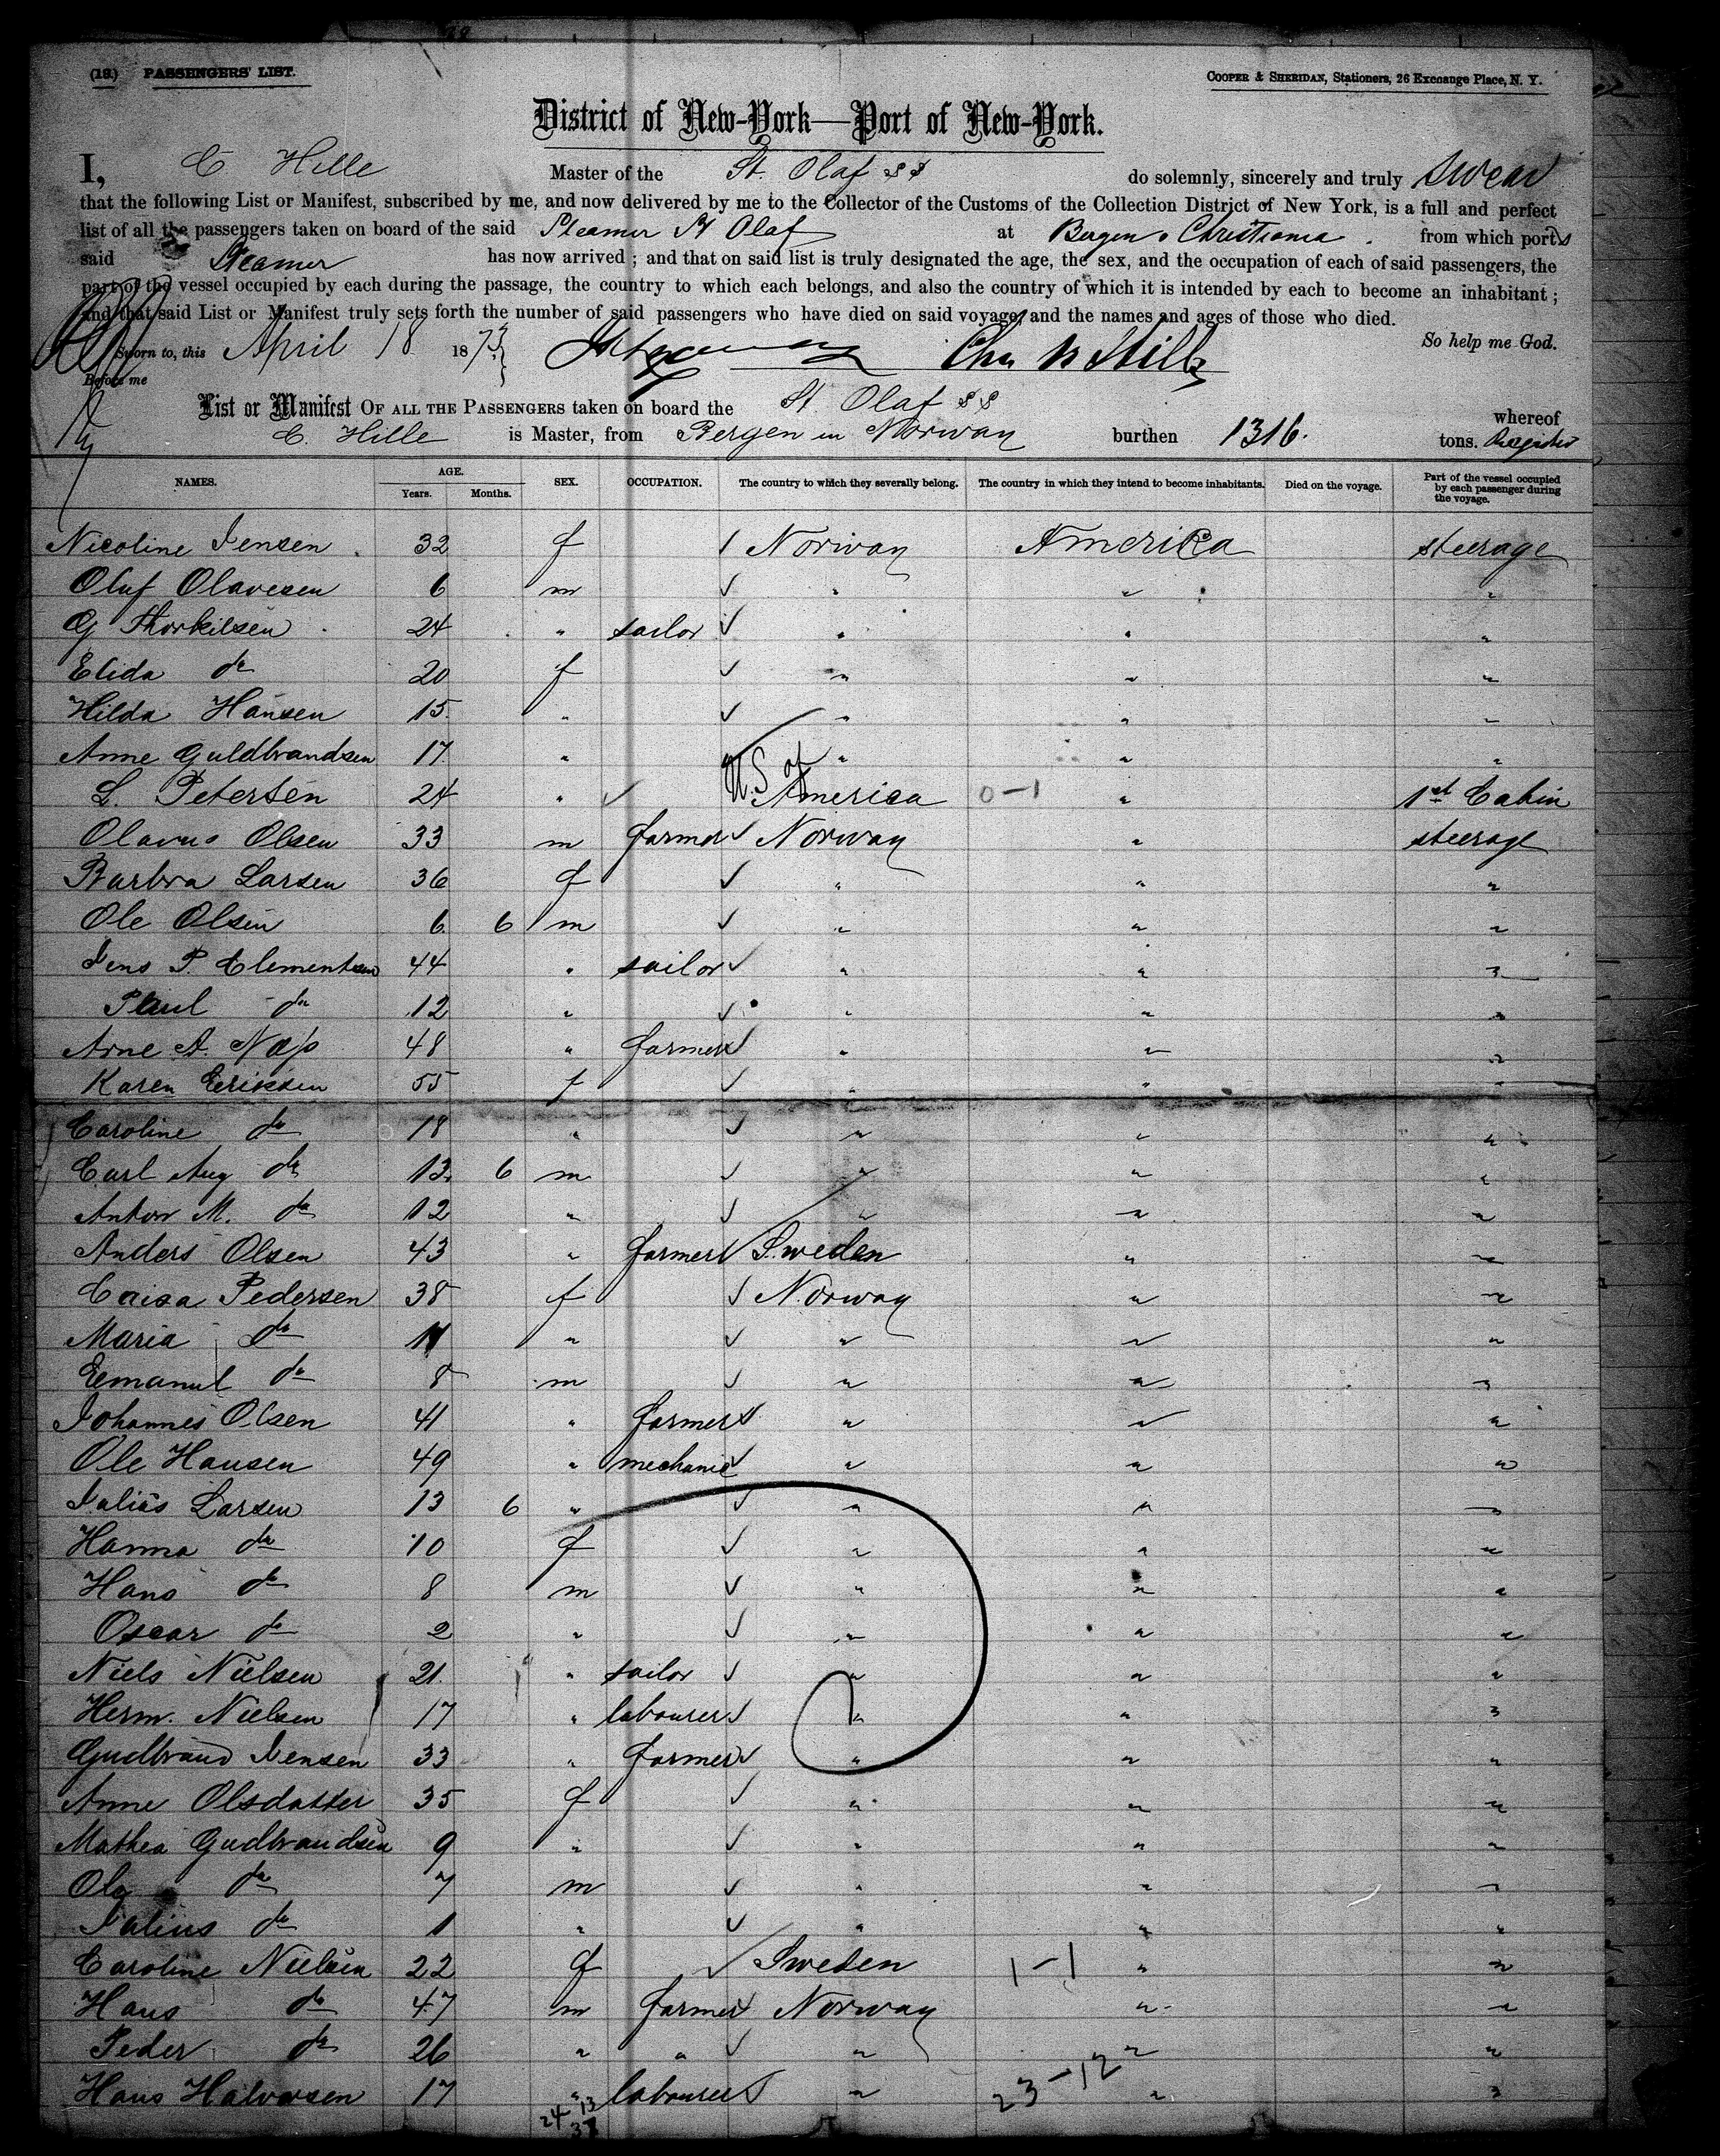 (18.) PASSENGERS' LIST.
COOPER & SHERIDAN, Stationers, 26 Exchange Place, N. Y.
District of New-York—Port of New-York.
I, C Hille Master of the St. Olaf SS do solemnly, sincerely and truly swear
that the following List or Manifest, subscribed by me, and now delivered by me to the Collector of the Customs of the Collection District of New York, is a full and perfect
list of all the passengers taken on board of the said Steamer St Olaf at Bergen & Christiania. from which ports
said Steamer has now arrived ; and that on said list is truly designated the age, the sex, and the occupation of each of said passengers, the
part of the vessel occupied by each during the passage, the country to which each belongs, and also the country of which it is intended by each to become an inhabitant ;
and that said List or Manifest truly sets forth the number of said passengers who have died on said voyage, and the names and ages of those who died.
So help me God.
Sworn to, this April 18 1873
Before me
List or Manifest OF ALL THE PASSENGERS taken on board the St. Olaf SS whereof
C. Hille is Master, from Bergen in Norway burthen 1316. tons. Register
NAMES. AGE. Years. Months. SEX. OCCUPATION. The country to which they severally belong. The country in which they intend to become inhabitants. Died on the voyage. Part of the vessel occupied by each passenger during the voyage.
Nicoline Jensen 32 f Norway America steerage
Oluf Olavesen 6 m " " "
G Thorkilsen 24 " sailor " " "
Elida do 20 f " " "
Hilda Hansen 15 " " " "
Anne Guldbrandsen 17 " " " "
L. Petersen 24 " U.S of America 0-1 " 1st Cabin
Olavus Olsen 33 m farmer Norway " steerage
Barbra Larsen 36 f " " "
Ole Olsen 6 6 m " " "
Jens P. Clementsen 44 " sailor " " "
Paul do 12 " " " "
Arne A. 48 " farmer " " "
Karen Eriksen 55 f " " "
Caroline do 18 " " " "
Carl Aug do 13 6 m " " "
Anton M. do 12 " " " "
Anders Olsen 43 " farmer Sweden " "
Caisa Pedersen 38 f Norway " "
Maria do 11 " " " "
Eemanul do 8 m " " "
Johannes Olsen 41 " farmer " " "
Ole Hansen 49 " mechanic " " "
Julius Larsen 13 6 " " " "
Hanna do 10 f " " "
Hans do 8 m " " "
Oscar do 2 " " " "
Niels Nielsen 21 " sailor " " "
Herm. Nielsen 17 " labourer " " "
Gudbrand Jensen 33 " farmer " " "
Anne Olsdatter 35 f " " "
Mathea Gudbrandsen 9 " " " "
Ole do 7 m " " "
Julius do 1 " " " "
Caroline Nielsen 22 f Sweden 1-1 " "
Hans do 47 m farmer Norway " "
Peder do 26 " " " " "
Hans Halvorsen 17 " labourer " 23-12 " "
24 13
37